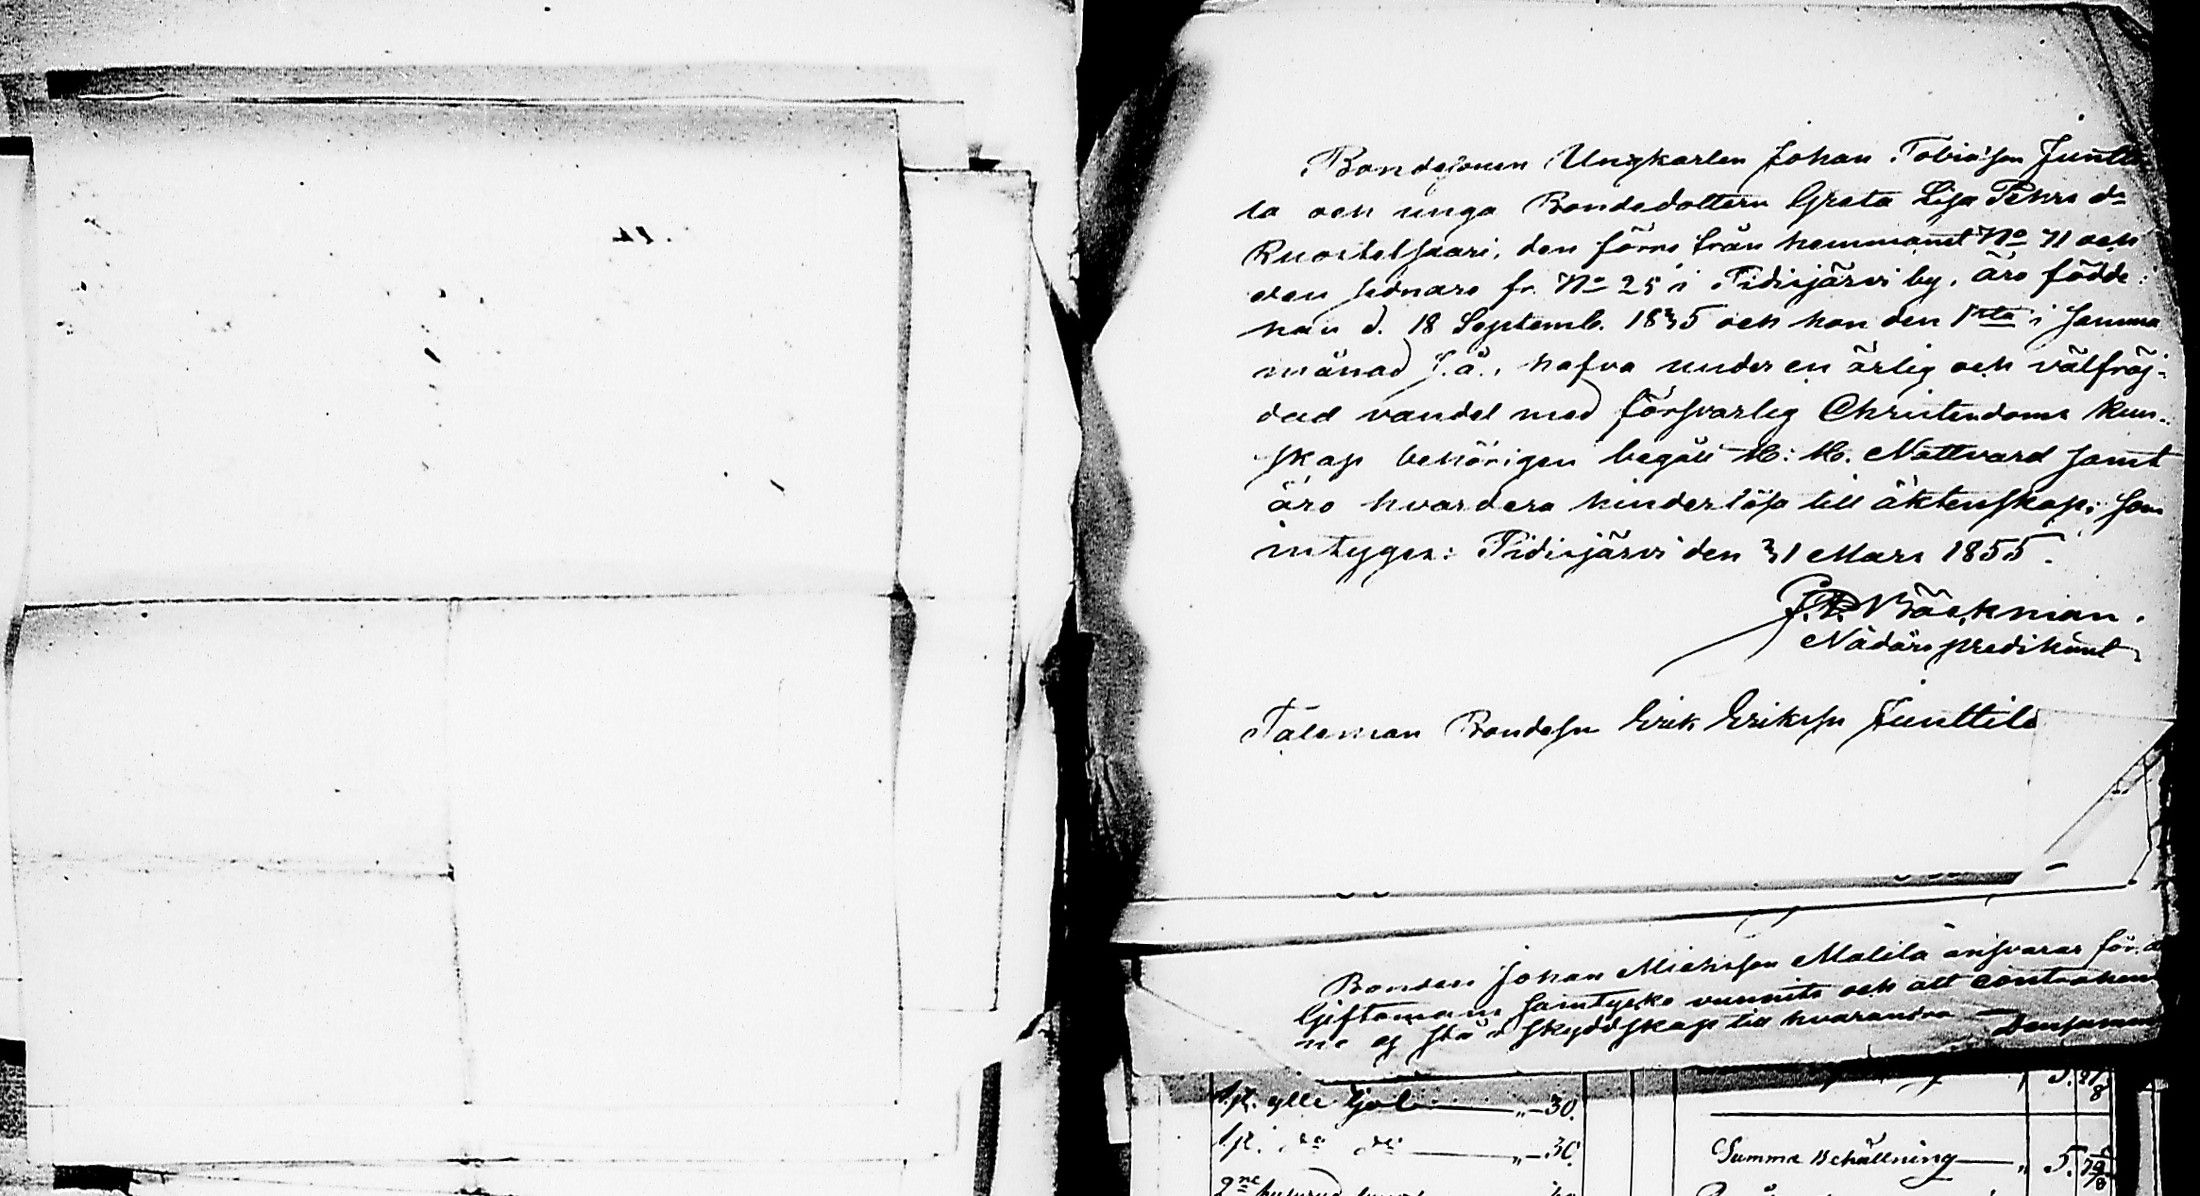 Bondesonen Ungkarlen Johan Tobiasson Juntti
la och unga Bondedottern Greta Lisa Pehrs dr
Ruostetsaari, den förre från hemmanet No 71 och
den sednare fr. No 25 i Pidisjärvi by, äro födde:
han d. 18 Septemb. 1835 och hon den 1sta i samma
månad s. å., hafva under en ärlig och välfräj-
dad vandel med försvarlig Christendoms kun-
skap behörigen begått H: H. Nattvard samt
äro hvardera hinderlösa till äktenskap; som
intygar: Pidisjärvi den 31 Mars 1855.
J. P. Bäckman.
Nådårs predikant
Taleman Bondeson Erik Eriksson Junttila
Bonden Johan Michelsson Malila ansvarar för
Giftomans samtycke vunnits och att contrahen
ne ej stå i skyldskap till hvarandra Densamme
1 st. ylle kjol " 30.
1 st. do do " 30.
Summa Behållning " 5.